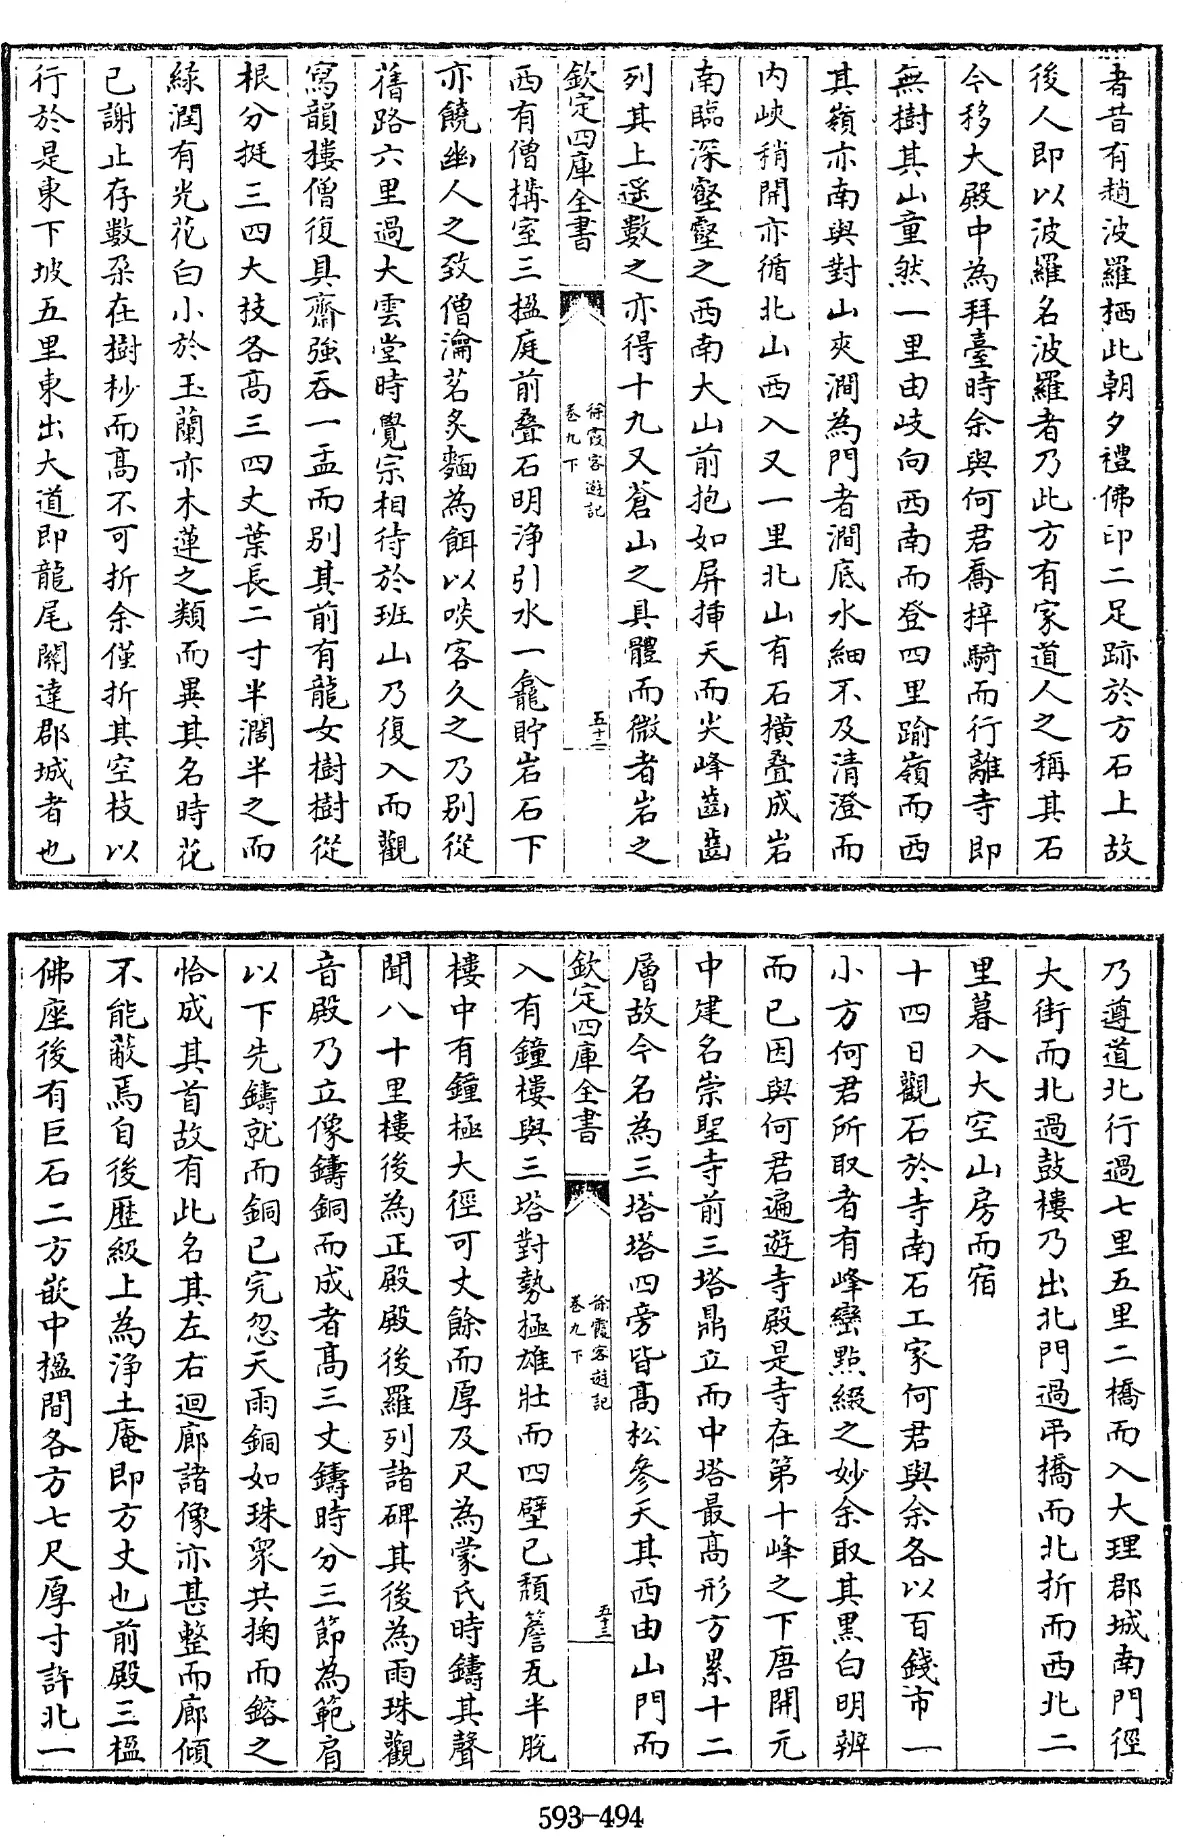 者昔有趙波羅栖此朝夕禮佛印二足跡於方石上故
後人即以波羅名波羅者乃此方有家道人之稱其石
今移大殿中為拜臺時余與何君喬梓騎而行離寺即
無樹其山童然一里由岐向西南而登四里踰嶺而西
其嶺亦南與對山夾澗為門者澗底水細不及清澄而
内峽稍開亦循北山西入又一里北山有石橫叠成岩
南臨深壑壑之西南大山前抱如屏挿天而尖峰齒齒
列其上遥數之亦得十九又蒼山之具體而微者岩之
欽定四庫全書
徐霞客遊記
卷九下
五十二
西有僧構室三楹庭前叠石明淨引水一龕貯岩石下
亦饒幽人之致僧瀹茗炙麵為餌以啖客久之乃别從
舊路六里過大雲堂時覺宗相待於班山乃復入而觀
寫韻樓僧復具齋強吞一盂而别其前有龍女樹樹從
根分挺三四大技各高三四丈葉長二寸半濶半之而
緑潤有光花白小於玉蘭亦木蓮之類而異其名時花
已謝止存數朶在樹杪而高不可折余僅折其空枝以
行於是東下坡五里東出大道即龍尾關達郡城者也
乃遵道北行過七里五里二橋而入大理郡城南門徑
大街而北過鼓樓乃出北門過弔橋而北折而西北二
里暮入大空山房而宿
十四日觀石於寺南石工家何君與余各以百錢市一
小方何君所取者有峰巒點綴之妙余取其黑白明辨
而已因與何君遍遊寺殿是寺在第十峰之下唐開元
中建名崇聖寺前三塔鼎立而中塔最高形方累十二
層故今名為三塔塔四旁皆高松參天其西由山門而
欽定四庫全書
徐霞客遊記
卷九下
五十三
入有鐘樓與三塔對勢極雄壯而四壁已頹簷瓦半脱
樓中有鐘極大徑可丈餘而厚及尺為蒙氏時鑄其聲
聞八十里樓後為正殿殿後羅列諸碑其後為雨珠觀
音殿乃立像鑄銅而成者高三丈鑄時分三節為範肩
以下先鑄就而銅已完忽天雨銅如珠衆共掬而鎔之
恰成其首故有此名其左右迴廊諸像亦甚整而廊傾
不能蔽焉自後歷級上為淨土庵即方丈也前殿三楹
佛座後有巨石二方嵌中楹間各方七尺厚寸許北一
593-494